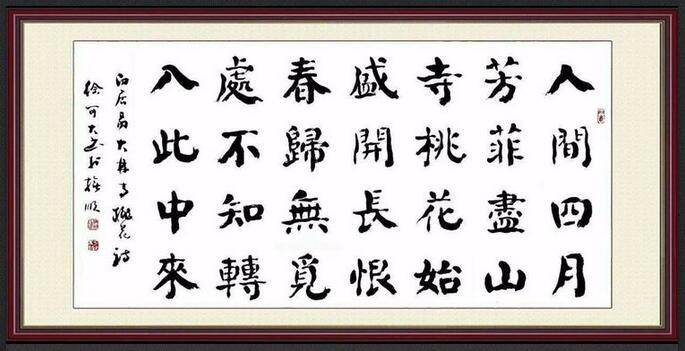 人間四月
芳菲盡山
寺桃花始
盛開長恨
春歸無覓
處不知轉
入此中來
白居易大林寺桃花詩
徐可大书於撫順